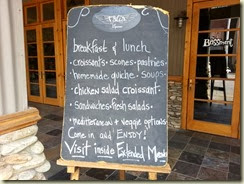 breakfast & lunch
• croissants • scones • pastries •
• homemade quiche • soups •
• chicken salad croissant •
• sandwiches • fresh salads •
• mediterranean + veggie options •
Come in and ENJOY!
Visit inside Extended Menu